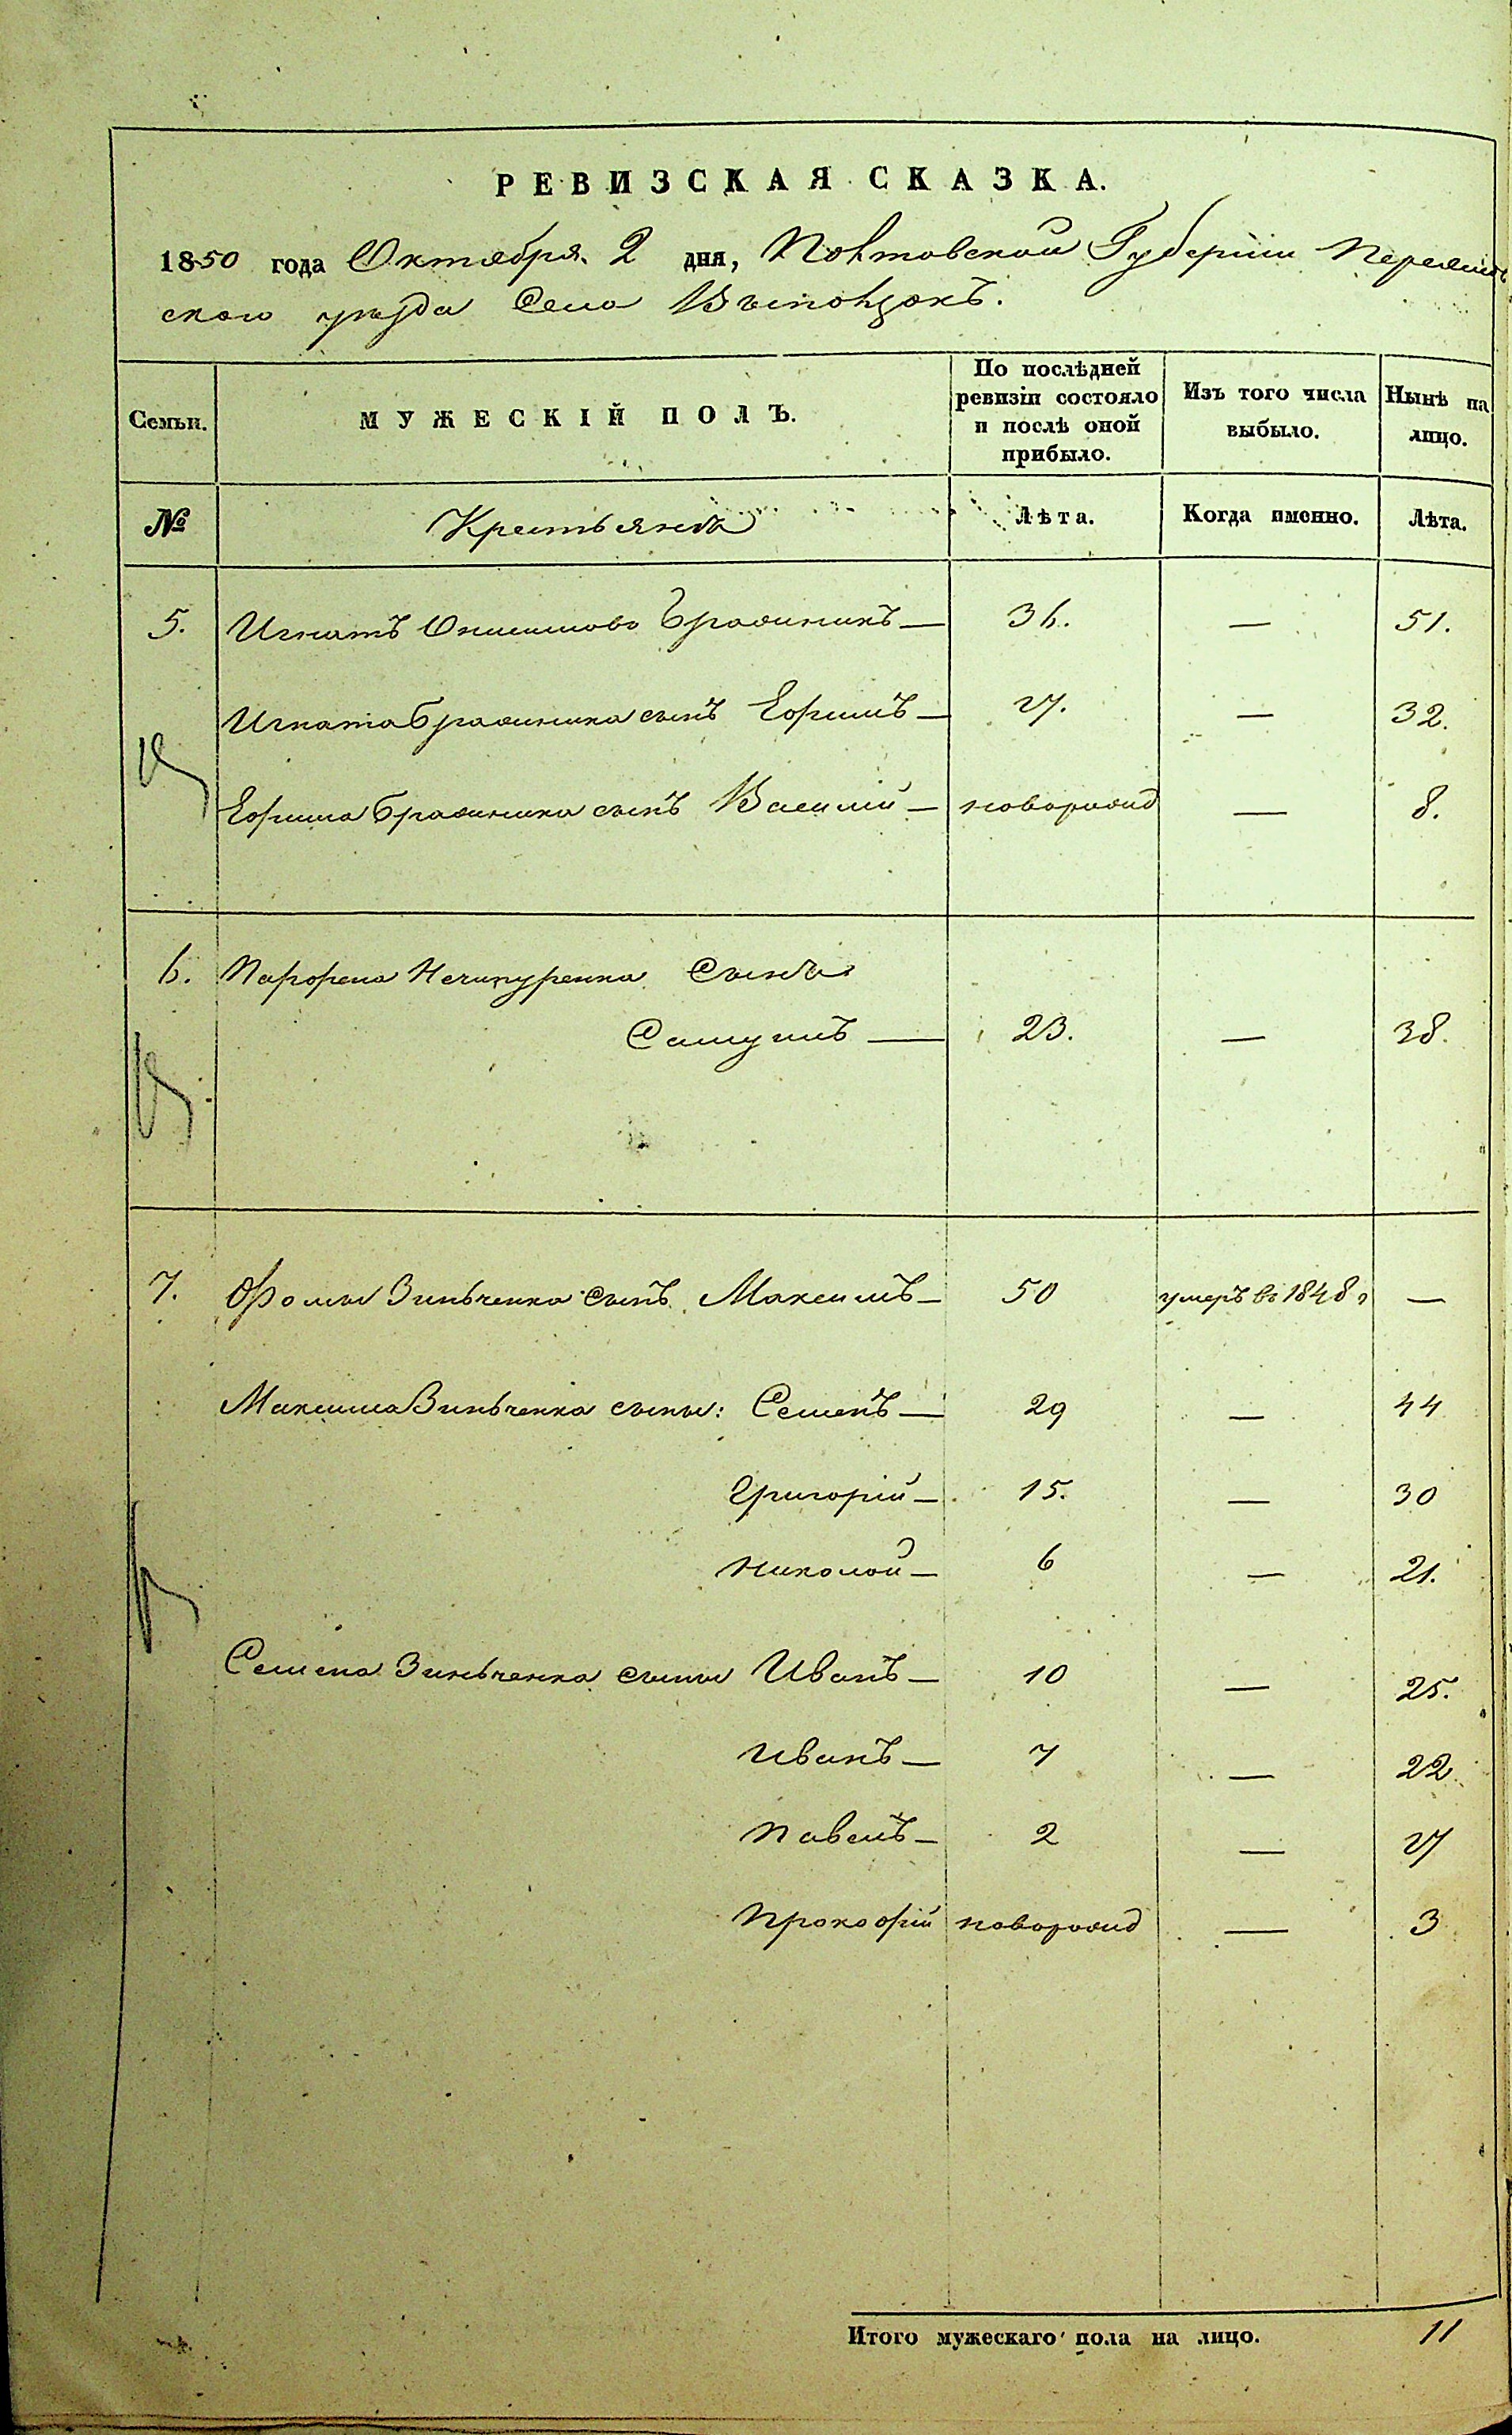 РЕВИЗСКАЯ СКАЗКА.
1850 года Октября 2 дня, Полтавской Губерніи Переяслав
скаго уѣзда Села Выползокъ.
Семьи. МУЖЕСКІЙ ПОЛЪ. По послѣдней ревизіи состояло и послѣ оной прибыло. Изъ того числа выбыло. Нынѣ на лицо.
№ Крестьяне Лѣта. Когда именно. Лѣта.
5. Игнатъ Онисимовъ Бражникъ — 36. — 51.
Игната Бражника сынъ Ефимъ — 17. — 32.
Ефима Бражника сынъ Василій — новорожд — 8.
6. Парфена Нечипуренка Сынъ
Самуилъ — 23. — 38.
7. Фомы Зинченка сынъ Максимъ — 50 умеръ въ 1848 г —
Максима Зиньченка сыны: Семенъ — 29 — 44
Григорій — 15. — 30
Николай — 6 — 21.
Семена Зиньченка сыны Иванъ — 10 — 25.
Иванъ — 7 — 22
Павелъ — 2 — 17
Прокофій новорожд — 3
Итого мужескаго пола на лицо. 11